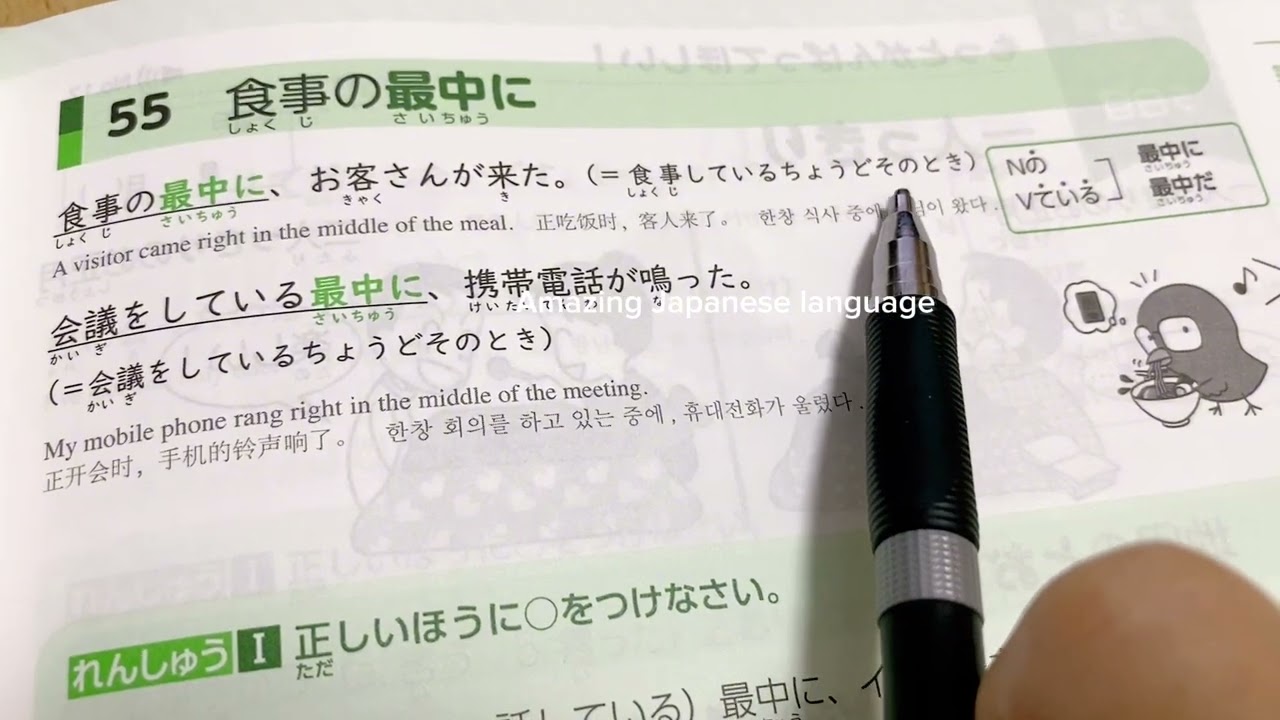 55 食事の最中に
しょく じ さいちゅう
食事の最中に、お客さんが来た。(=食事しているちょうどそのとき)
しょく じ さいちゅう きゃく き しょく じ
A visitor came right in the middle of the meal. 正吃饭时，客人来了。 한창 식사 중에 이 왔다.
Nの
Vている
最中に
さいちゅう
最中だ
さいちゅう
会議をしている最中に、携帯電話が鳴った。
かい ぎ さいちゅう けいたい
Amazing Japanese language
(=会議をしているちょうどそのとき)
かい ぎ
My mobile phone rang right in the middle of the meeting.
正开会时，手机的铃声响了。 한창 회의를 하고 있는 중에, 휴대전화가 울렸다.
れんしゅう I 正しいほうに○をつけなさい。
ただ
している) 最中に、